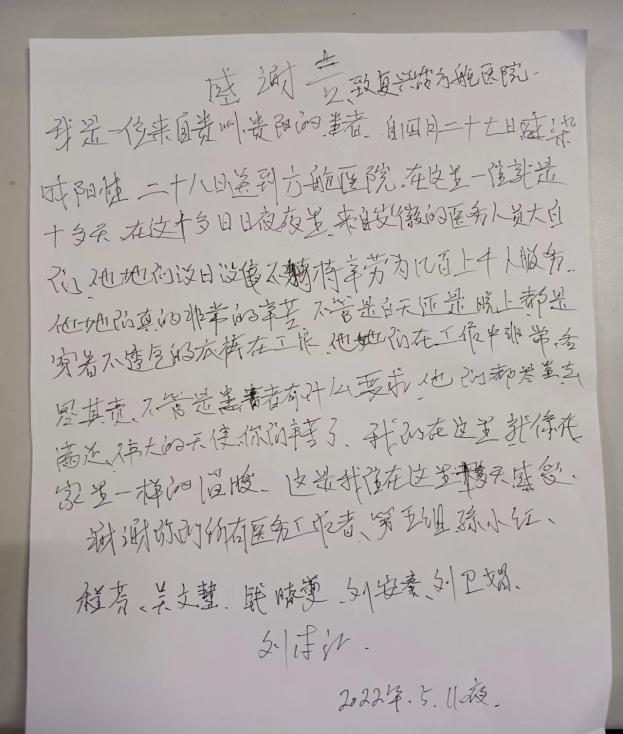 感谢言、致复兴路方舱医院.
我是一位来自贵州.贵阳的患者.自四月二十七日感染
成阳性 二十八日送到方舱医院.在这里一住就是
十多天.在这十多日日夜夜里.来自安徽的医务人员大白
们、他她们没日没夜不辞辛劳为几百上千人服务.
他她们真的非常的辛苦.不管是白天还是晚上都是
穿着不透气的衣裤在工作.他她们在工作中非常.各
尽其责、不管是患者有什么要求.他们都尽量去
满足、伟大的天使.你们辛苦了、我们在这里就像在
家里一样的温暖.这是我住在这里十多天感受.
感谢你们所有医务工作者、第五组孙小红、
程芳、吴文慧.钱 .刘安秦、刘卫娟.
刘
2022年.5.11.夜.